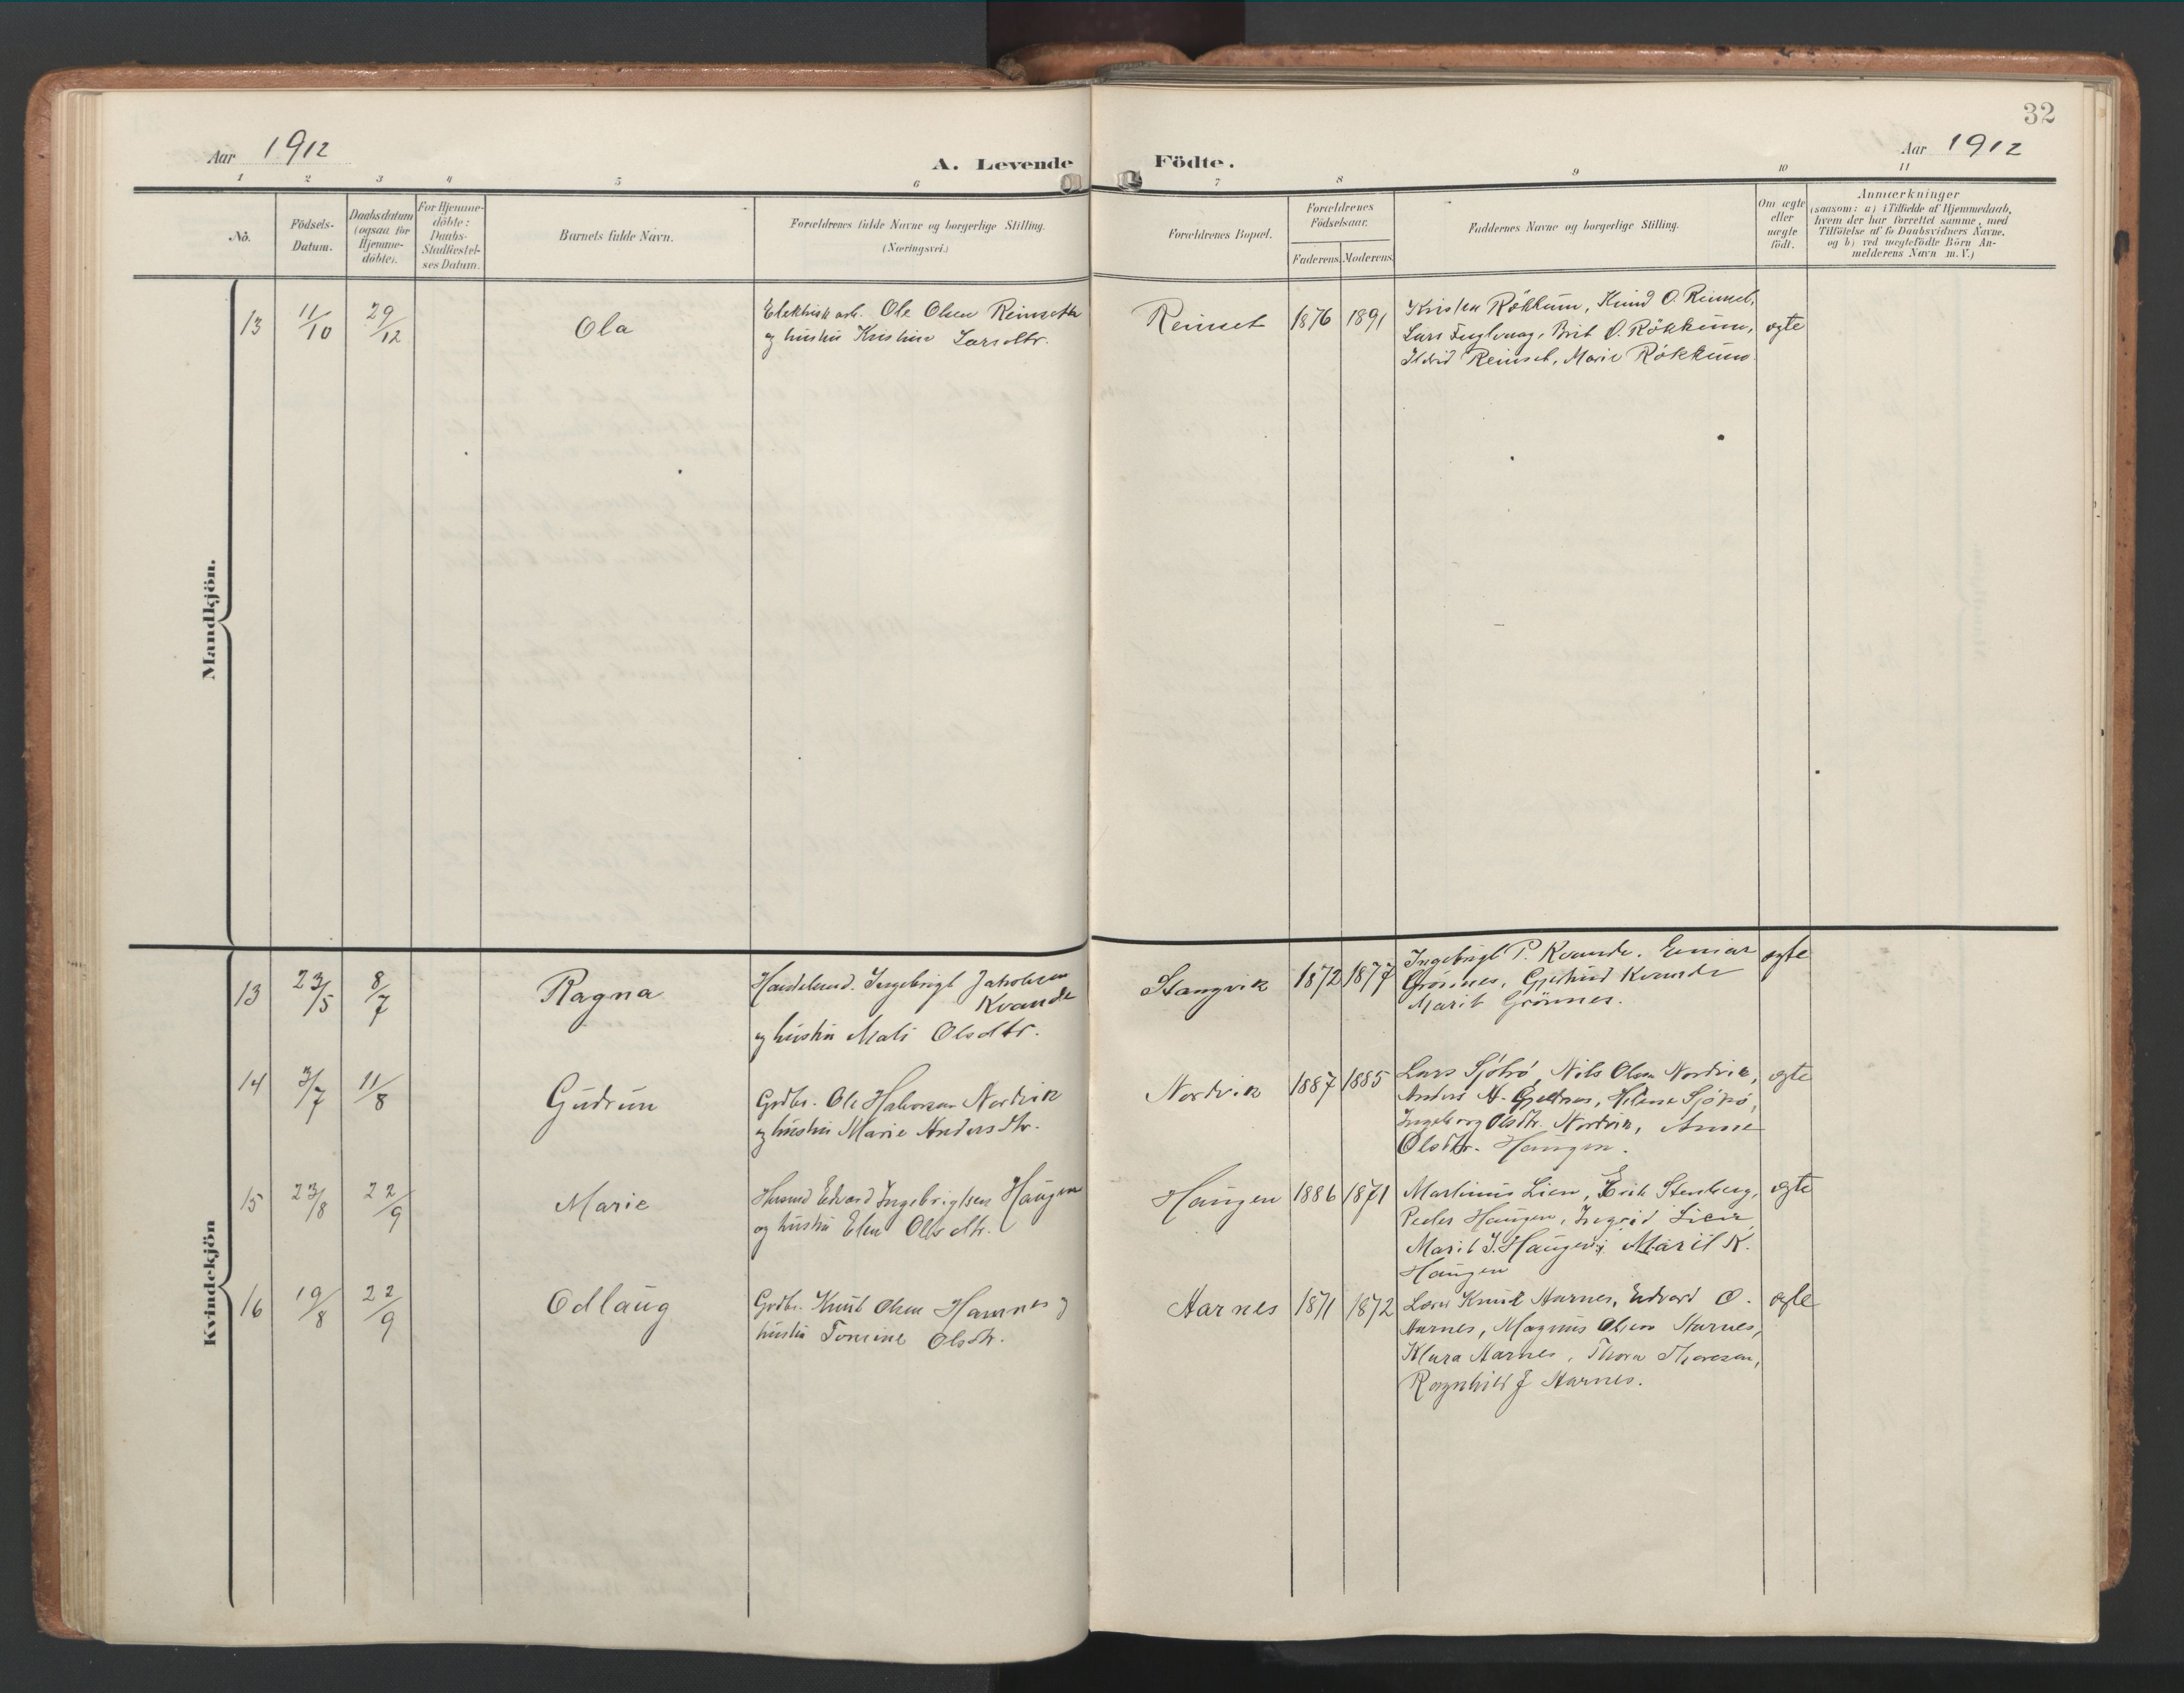 32
Aar 1912
A. Levende Födte.
Aar 1912
1 2 3 4 5 6 7 8 9 10 11
No.
Födsels-
Datum.
Daabsdatum
(ogsaa for
Hjemme-
döbte).
For Hjemme-
döbte:
Daabs-
Stadfæstel-
ses Datum.
Barnets fulde Navn.
Forældrenes fulde Navne og borgerlige Stilling.
(Næringsvei.)
Forældrenes Bopæl.
Forældrenes
Födselsaar.
Faderens. Moderens.
Faddernes Navne og borgerlige Stilling.
Om ægte
eller
uægte
födt.
Anmærkninger
(saasom: a) i Tilfælde af Hjemmedaab,
hvem der har forrettet samme, med
Tilföielse af to Daabsvidners Navne.
og b) ved uægtefödte Börn An-
melderens Navn m. V.)
Mandkjön.
13 11/10 29/12 Ola
Elektrisk arb. Ole Olsen Reinseth
og hustru Kristine Larsdtr.
Reinset 1876 1891
Kristen Rökkum, Knud O. Reinset,
Lars Fuglvaag, Brit O. Rökkum,
Ildrid Reinset, Marie Rökkum.
ægte
Kvindekjön
13 23/5 8/7 Ragna
Handelsmd. Ingebrigt Jakobsen
Kvande
og hustru Mali Olsdtr.
Stangvik 1872 1877
Ingebrigt P. Kvande, Einar
Grönnes, Gjertrud Kvande
Marit Grönnes.
ægte
14 3/7 11/8 Gudrun
Grdbr. Ole Halvorsen Nordvik
og hustru Marie Andersdtr.
Nordvik 1887 1885
Lars Sjöbö, Nils Olsen Nordvik,
Anders H. Gjeldnes, Helene Sjöbö,
Ingeborg Olsdtr. Nordvik, Anne
Olsdtr. Haugen.
ægte
15 23/8 22/9 Marie
Husmd Edvard Ingebrigtsen Haugen
og hustru Elen Olsdtr.
Haugen 1886 1871
Martinus Lien, Erik Stenberg,
Peder Haugen, Ingrid Lien,
Marit I. Haugen, Marit K.
Haugen
ægte
16 19/8 22/9 Odlaug
Grdbr. Knut Olsen Hamnes og
hustru Tomine Olsdtr.
Aarnes 1871 1872
Lars Knut Aarnes, Edvard O.
Aarnes, Magnus Olsen Aarnes,
Klara Aarnes, Thora Thoresen,
Ragnhild J Aarnes.
ægte